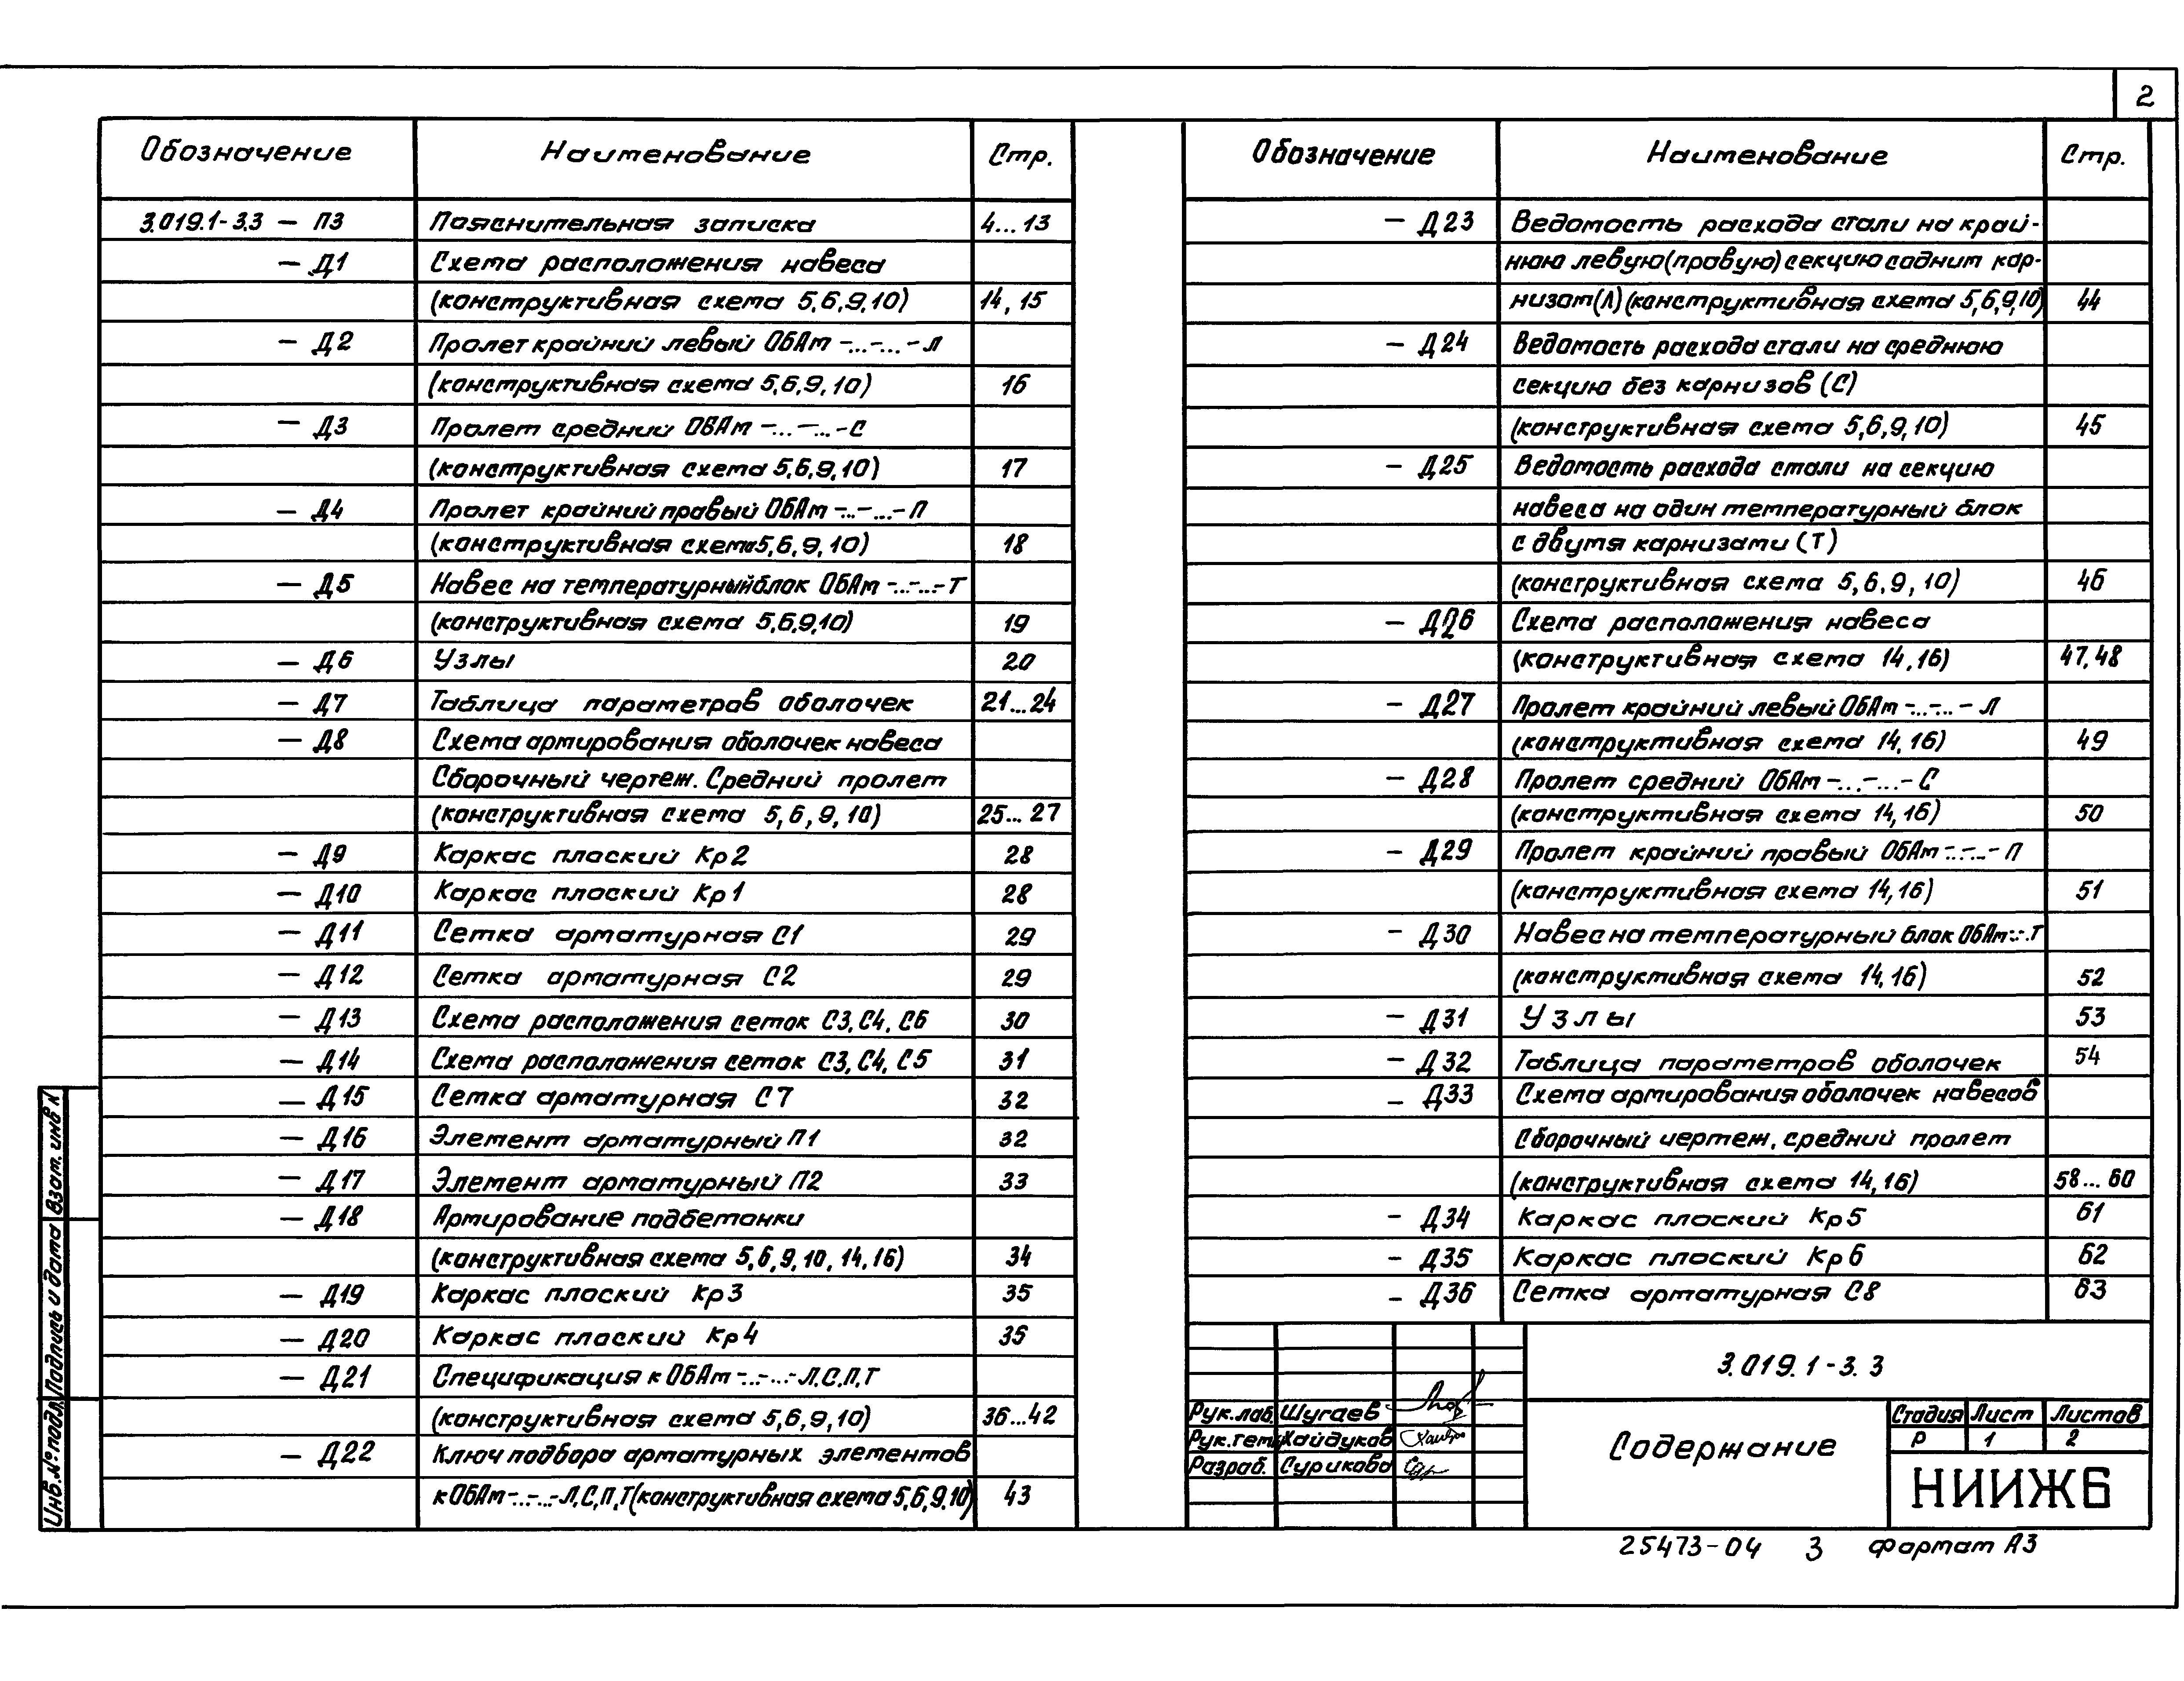 2
Обозначение Наименование Стр.
3.019.1-3.3 — ПЗ Пояснительная записка 4...13
— Д1 Схема расположения навеса
(конструктивная схема 5,6,9,10) 14, 15
— Д2 Пролет крайний левый ОБАт-...-...-Л
(конструктивная схема 5,6,9,10) 16
— Д3 Пролет средний ОБАт-...-...-С
(конструктивная схема 5,6,9,10) 17
— Д4 Пролет крайний правый ОБАт-...-...-П
(конструктивная схема 5,6,9,10) 18
— Д5 Навес на температурный блок ОБАт-...-...-Т
(конструктивная схема 5,6,9,10) 19
— Д6 Узлы 20
— Д7 Таблица параметров оболочек 21...24
— Д8 Схема армирования оболочек навеса
Сборочный чертеж. Средний пролет
(конструктивная схема 5,6,9,10) 25...27
— Д9 Каркас плоский Кр2 28
— Д10 Каркас плоский Кр1 28
— Д11 Сетка арматурная С1 29
— Д12 Сетка арматурная С2 29
— Д13 Схема расположения сеток С3, С4, С6 30
— Д14 Схема расположения сеток С3, С4, С5 31
— Д15 Сетка арматурная С7 32
— Д16 Элемент арматурный П1 32
— Д17 Элемент арматурный П2 33
— Д18 Армирование подбетонки
(конструктивная схема 5,6,9,10,14,16) 34
— Д19 Каркас плоский Кр3 35
— Д20 Каркас плоский Кр4 35
— Д21 Спецификация к ОБАт-...-...-Л,С,П,Т
(конструктивная схема 5,6,9,10) 36...42
— Д22 Ключ подбора арматурных элементов
к ОБАт-...-...-Л,С,П,Т (конструктивная схема 5,6,9,10) 43
Обозначение Наименование Стр.
— Д23 Ведомость расхода стали на край-
нюю левую (правую) секцию с одним кар-
низом (Л) (конструктивная схема 5,6,9,10) 44
— Д24 Ведомость расхода стали на среднюю
секцию без карнизов (С)
(конструктивная схема 5,6,9,10) 45
— Д25 Ведомость расхода стали на секцию
навеса на один температурный блок
с двумя карнизами (Т)
(конструктивная схема 5,6,9,10) 46
— Д26 Схема расположения навеса
(конструктивная схема 14,16) 47,48
— Д27 Пролет крайний левый ОБАт-...-...-Л
(конструктивная схема 14,16) 49
— Д28 Пролет средний ОБАт-...-...-С
(конструктивная схема 14,16) 50
— Д29 Пролет крайний правый ОБАт-...-...-П
(конструктивная схема 14,16) 51
— Д30 Навес на температурный блок ОБАт-..-.Т
(конструктивная схема 14,16) 52
— Д31 Узлы 53
— Д32 Таблица параметров оболочек 54
— Д33 Схема армирования оболочек навесов
Сборочный чертеж, средний пролет
(конструктивная схема 14,16) 58...60
— Д34 Каркас плоский Кр5 61
— Д35 Каркас плоский Кр6 62
— Д36 Сетка арматурная С8 63
3.019.1-3.3
Рук.лаб. Шугаев
Рук.тем. Хайдуков
Разраб. Сурикова
Содержание
Стадия Лист Листов
Р 1 2
НИИЖБ
25473-04 3 Формат А3
Инв.№ подл. Подпись и дата Взам. инв №